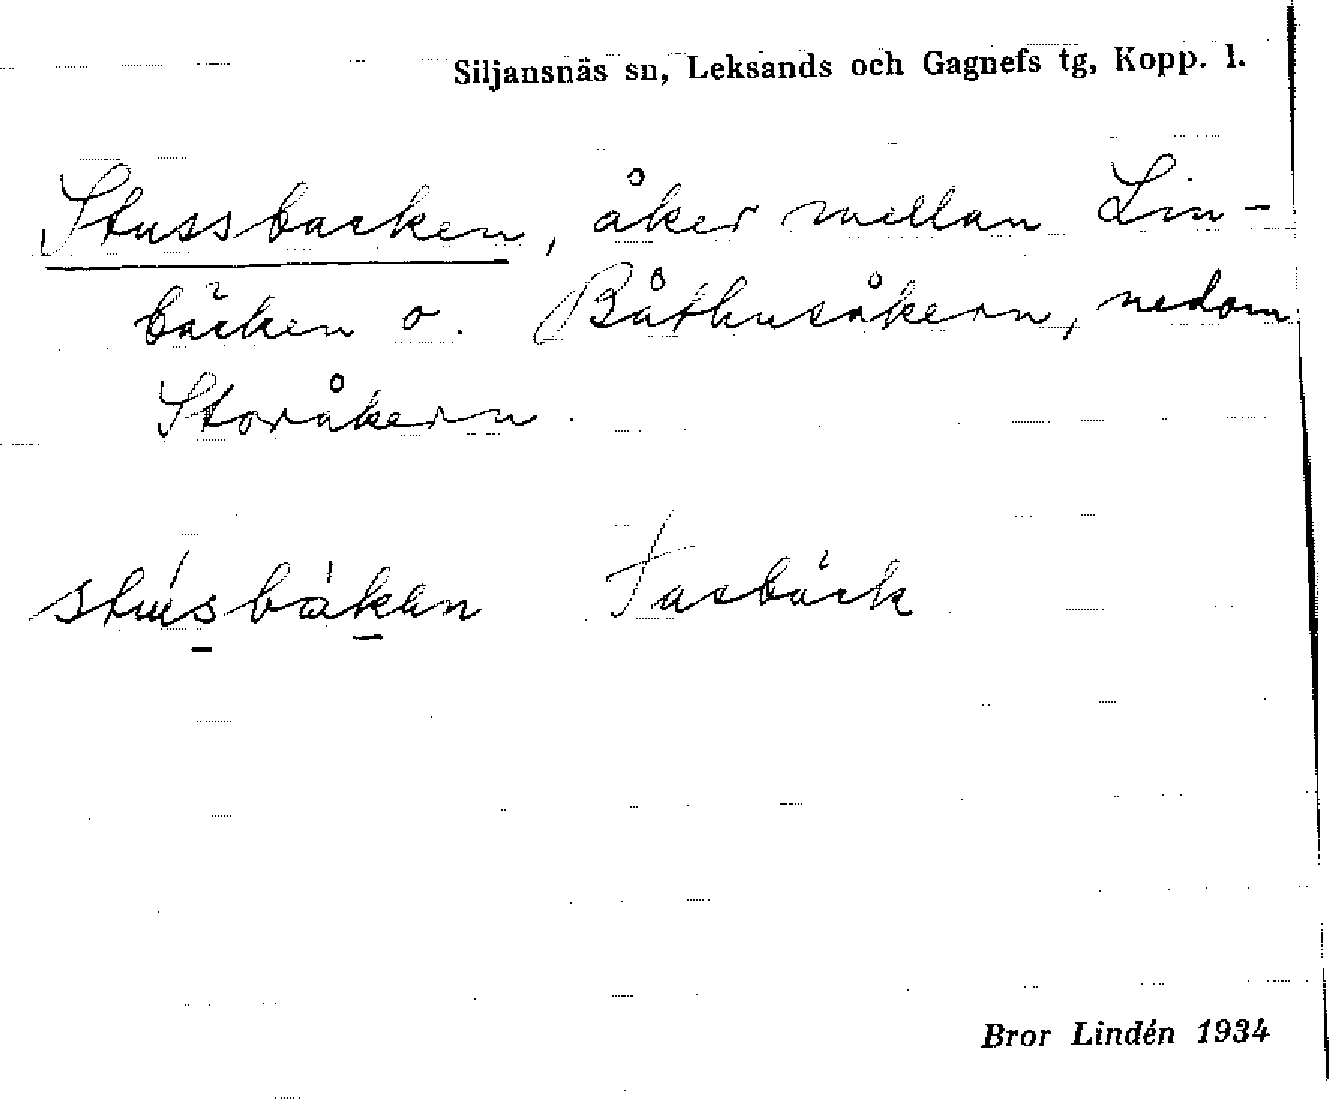 Siljansnäs sn, Leksands och Gagnefs tg, Kopp. l.
Stussbacken, åker mellan Lin-
bäcken o. Båthusåkern, nedom
Storåkern.
Bror Lindén 1934